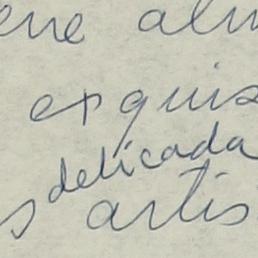 ene alm
exquis
delicada
s artis